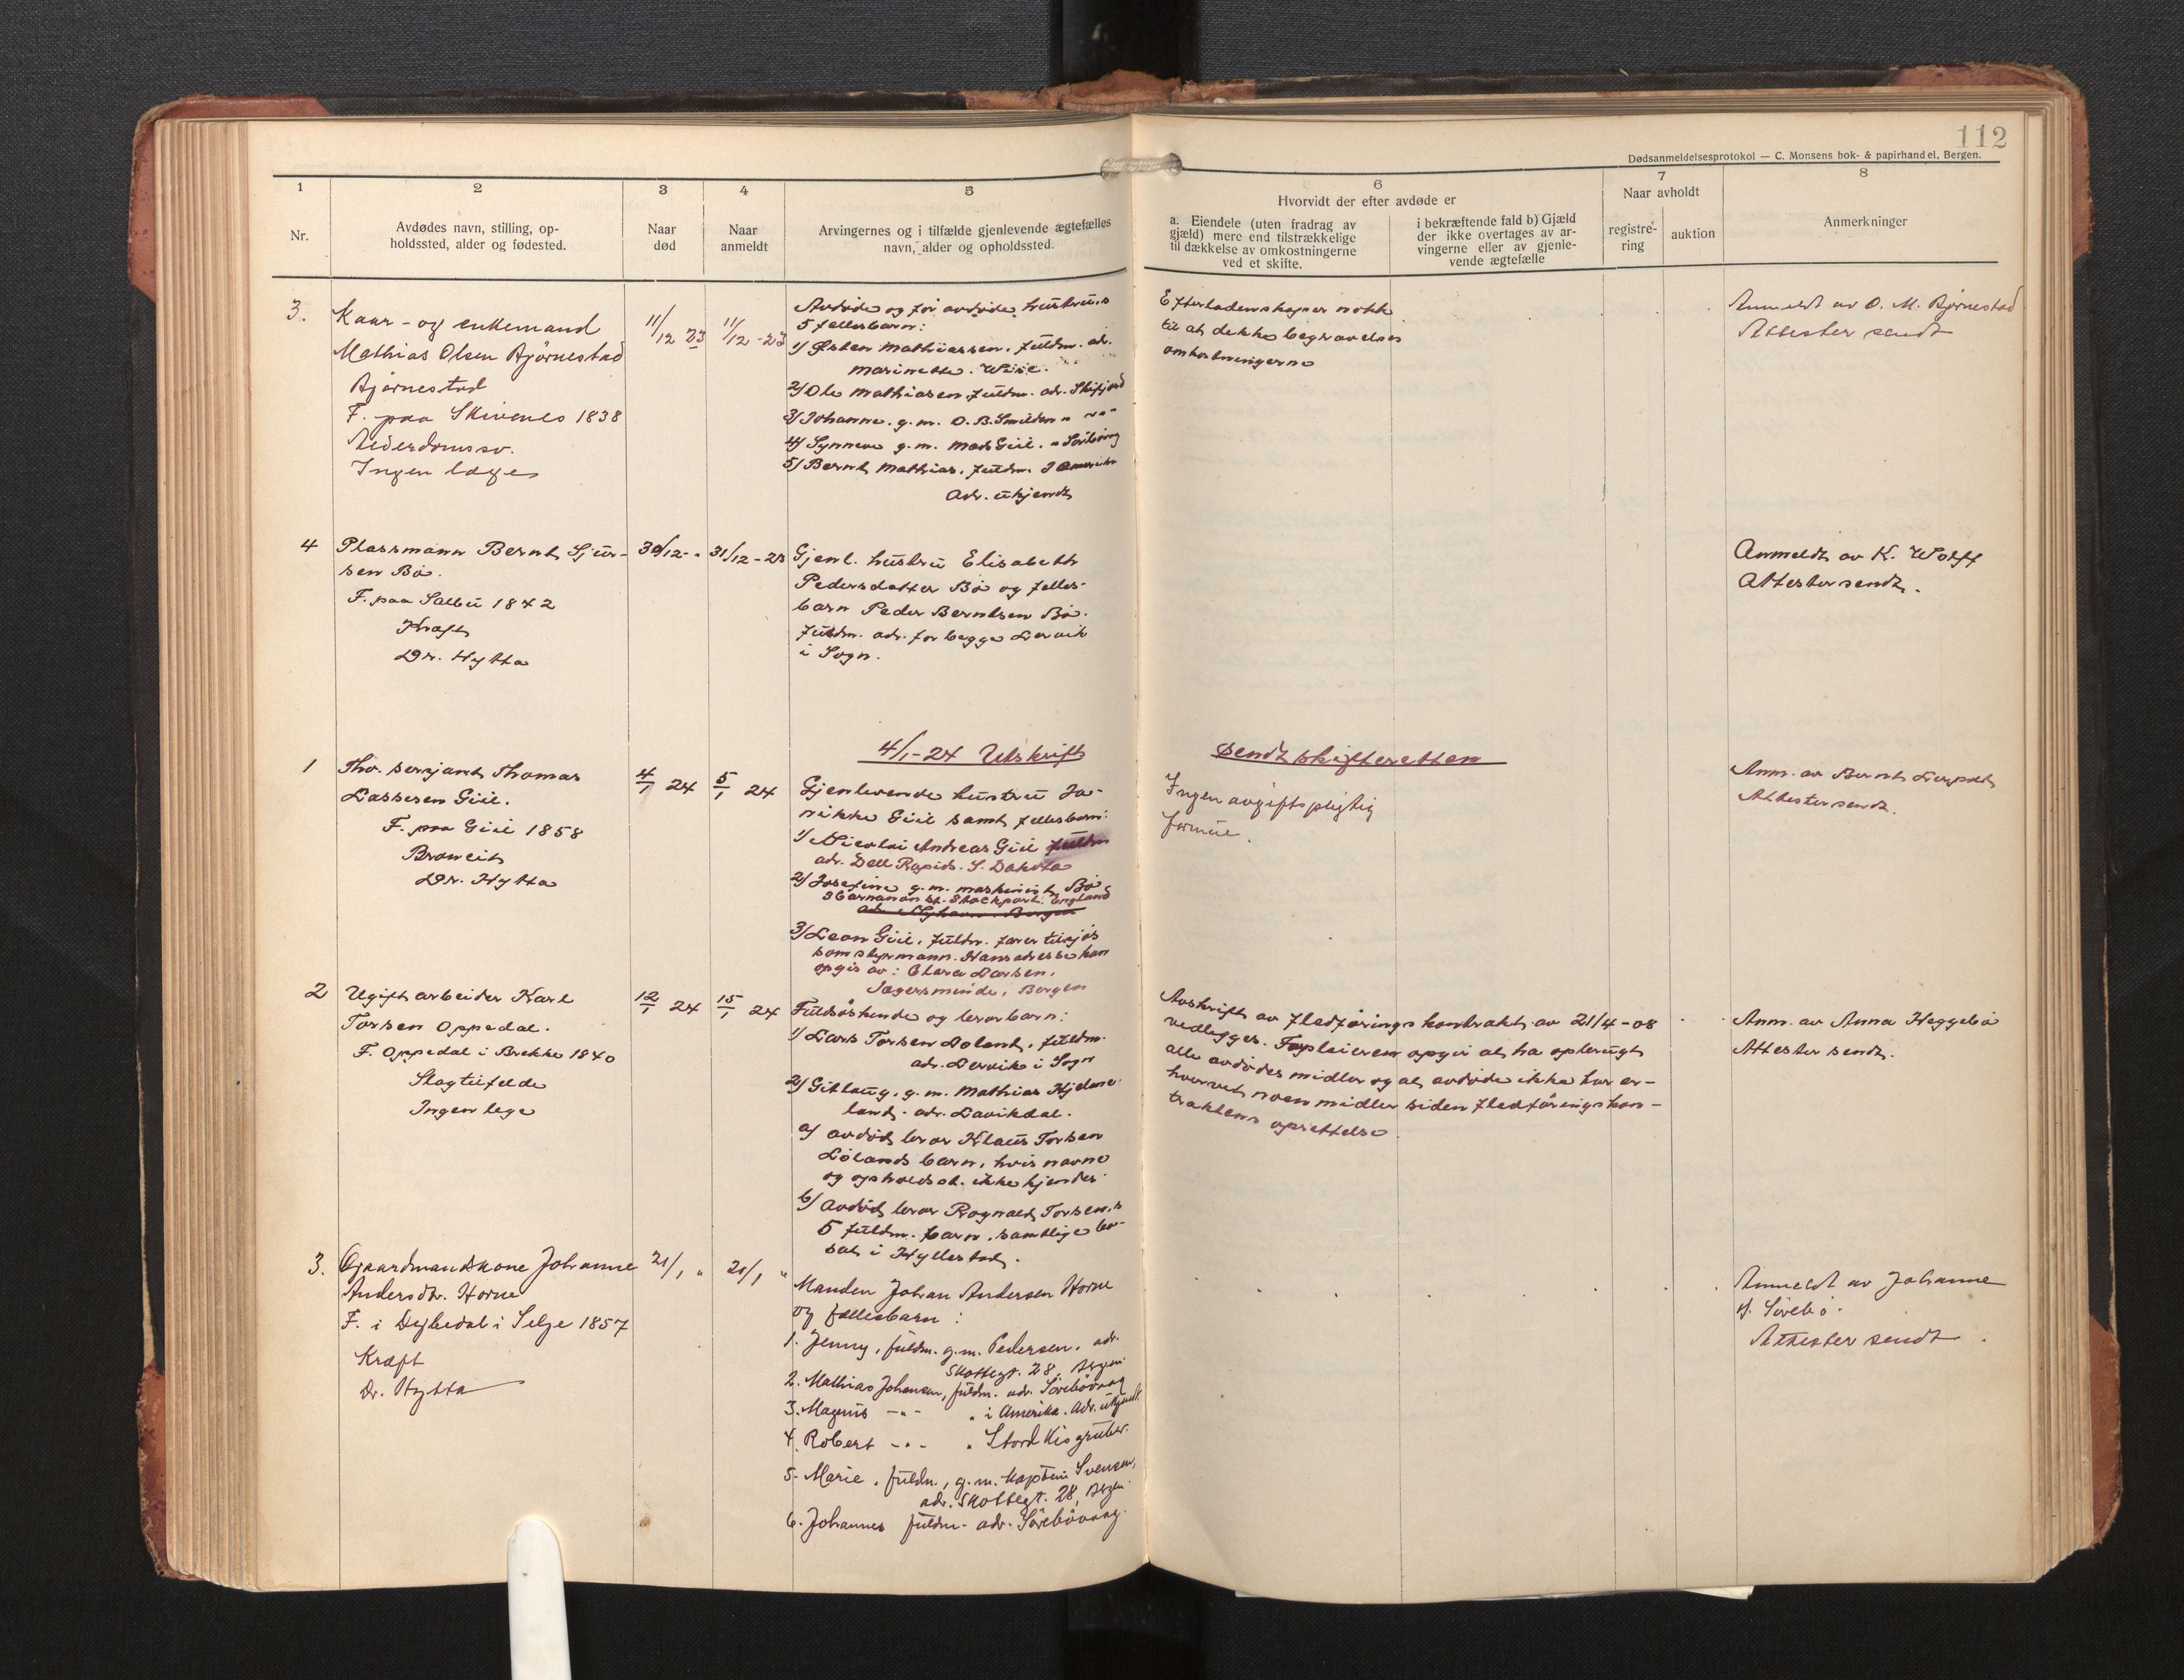 112
Dødsanmeldelsesprotokol — C. Monsens bok- & papirhandel, Bergen.
1
Nr.
2
Avdødes navn, stilling, op-
holdssted, alder og fødested.
3
Naar
død
4
Naar
anmeldt
5
Arvingernes og i tilfælde gjenlevende ægtefælles
navn, alder og opholdssted.
6
Hvorvidt der efter avdøde er
a. Eiendele (uten fradrag av
gjæld) mere end tilstrækkelige
til dækkelse av omkostningerne
ved et skifte.
i bekræftende fald b) Gjæld
der ikke overtages av ar-
vingerne eller av gjenle-
vende ægtefælle
7
Naar avholdt
registre-
ring
auktion
8
Anmerkninger
3.
Kaar- og enkemand
Mathias Olsen Bjørnestad
Bjørnestad
F. paa Skivenes 1838
Alderdomssv.
Ingen læge
11/12 23
11/12-23
Avdøde og før avdøde hustrus
5 fellesbarn:
1/ Østen Mathiassen, fuldm. adr.
2/ Ole Mathiasen, fuldm. adr. Skifjord
3/ Johanne g.m. O. B. Smilden " -"-
4/ Synneve g.m. Mads Giil. " Sørbövåg
5/ Bernt Mathias, fuldm. I Amerika
Adr. ukjendt
Efterladenskaper nokk
til at dekke begravelses
omkostningerne
Anmeldt av O. M. Bjørnestad
Attester sendt
4
Plassmann Bernt Sjur-
sen Bø.
F. paa Salbu 1842
Kræft
Dr. Hytta
30/12- "
31/12-23
Gjenl. hustru Elisabeth
Pedersdatter Bø og felles-
barn Peder Berntsen Bø.
fuldm. adr. for begge Lervik
i Sogn.
Anmeldt av K. Wolff
Attester sendt.
4/1-24 Utskrift
sendt skifteretten
1
Fhv. serjant Thomas
Lassesen Giil.
F. paa Giil 1858
Dr. Hytta
4/1 24
5/1 24
Gjenlevende hustru Ja-
nikke Giil samt fellesbarn:
1/ Nicolai Andreas Giil fuldm
adr. Dell Rapids. S. Dakota
2/ Josefine g.m. maskinist Bø,
3 Carnanon St. Stockport. England
3/ Leon Giil, fuldm. farer tilsjøs
som styrmann. Hans adresse kan
opgis av: Clara Larsen,
Jægersminde, Bergen
Ingen avgiftspligtig
formue.
Anm. av Bernt
Attester sendt.
2
Ugift arbeider Karl
Torsen Oppedal.
F. Oppedal i Brekke 1840
Slagtilfelde
Ingen lege
12/1 24
15/1 24
Fuldsøskende og brorbarn:
1/ Lars Torsen Loland, fuldm.
adr. Lervik i Sogn
2/ Gitlaug, g.m. Mathias Hjelme-
land. adr. Lavikdal.
a/ avdød bror Klaus Torsen
Lölands barn, hvis navne
og opholdssd. ikke kjendes.
b/ avdød bror Ragnald Torsens
5 fuldm. barn, samtlige bo-
sat i Hyllestad.
Avskrift av flædføringskontrakt av 21/4-08
vedlegges. Forpleieren opgir at ha opbrugt
alle avdødes midler og at avdøde ikke har er-
hvervet noen midler siden flædføringskon-
traktens oprettelse
Anm. av Anna Heggebø
Attester sendt.
3.
Gaardmandskone Johanne
Andersdtr. Horne
F. i Dybedal i Selje 1857
Kræft
Dr. Hytta
21/1 "
21/1 "
Manden Johan Andersen Horne
og fællesbarn:
1. Jenny, fuldm. g.m. Pedersen, adr.
Skottegt. 28, Bergen
2. Mathias Johansen, fuldm. adr. Sörebövaag
3. Magnus -"- " i Amerika. Adr. ukjendt.
4. Robert -"- " Stord Kisgruber.
5. Marie, fuldm., g.m. kaptein Svensen,
adr. Skottegt. 28, Bergen.
6. Johannes fuldm. adr. Sörebövaag.
Anmeldt av Johanne
Sörebö.
Attester sendt.